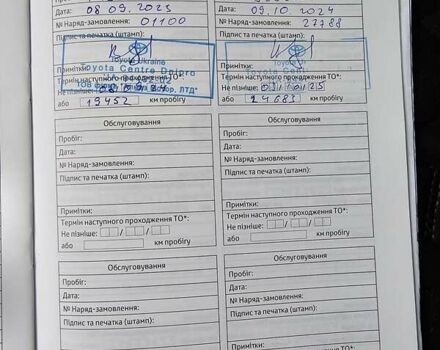 Дата: 08 09. 2023
№ Наряд-замовлення: 01100
Підпис та печатка (штамп):
Toyota Ukraine
Toyota Centre Dnipro
Примітки:
Термін наступного проходження ТО*:
Не пізніше:
або 19452 км пробігу
Дата: 09. 10. 2024
№ Наряд-замовлення: 27788
Підпис та печатка (штамп):
Примітки:
Термін наступного проходження ТО*:
Не пізніше: 09 10 25
або 24683 км пробігу
Обслуговування
Пробіг:
Дата:
№ Наряд-замовлення:
Підпис та печатка (штамп):
Примітки:
Термін наступного проходження ТО*:
Не пізніше: / /
або км пробігу
Обслуговування
Пробіг:
Дата:
№ Наряд-замовлення:
Підпис та печатка (штамп):
Примітки:
Термін наступного проходження ТО*:
Не пізніше: / /
або км пробігу
Обслуговування
Пробіг:
Дата:
№ Наряд-замовлення:
Підпис та печатка (штамп):
Примітки:
Обслуговування
Пробіг:
Дата:
№ Наряд-замовлення:
Підпис та печатка (штамп):
Примітки: